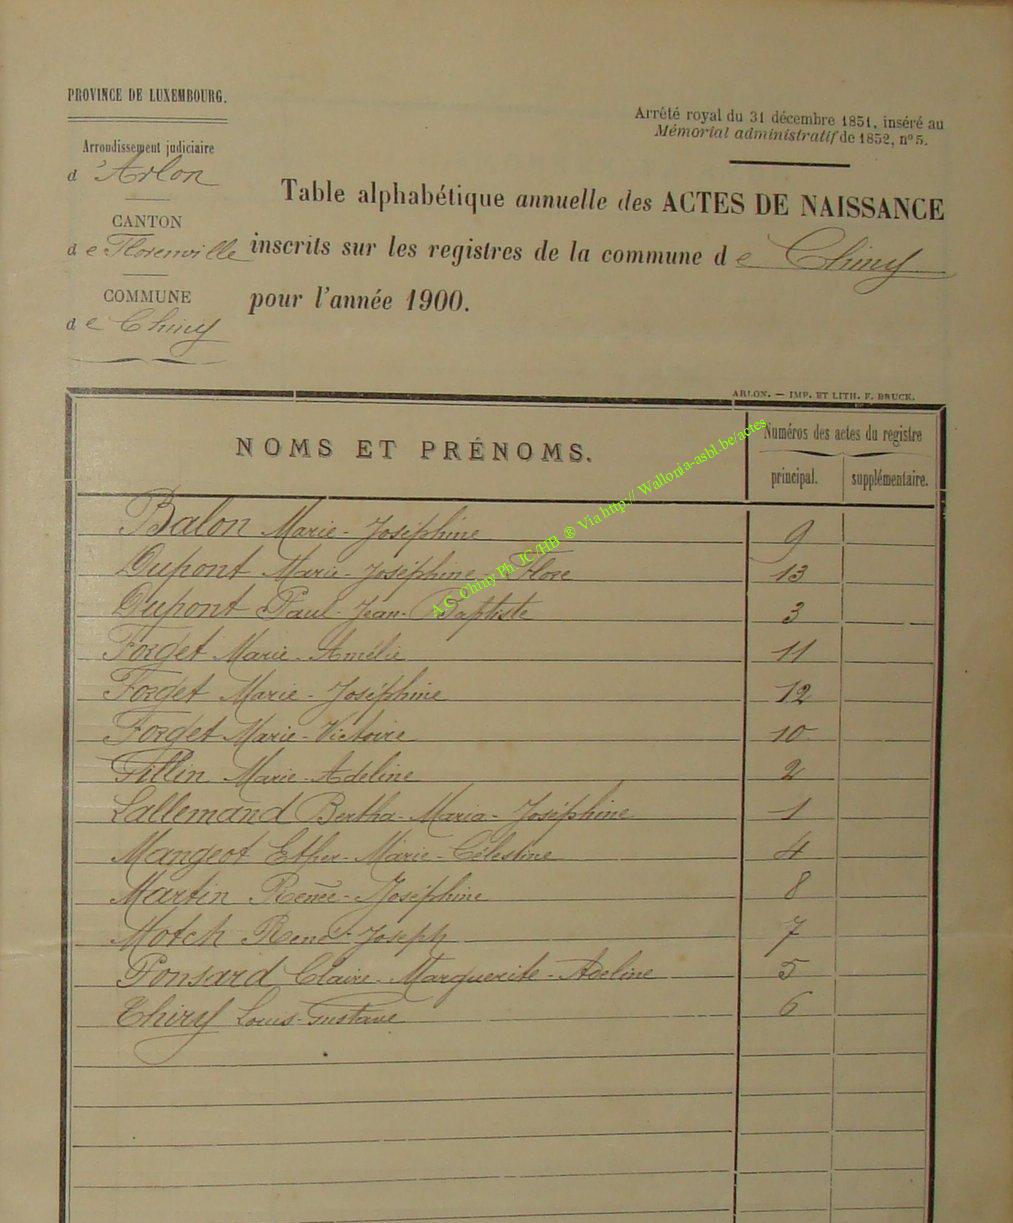 PROVINCE DE LUXEMBOURG.
Arrêté royal du 31 décembre 1851, inséré au
Mémorial administratif de 1852, n° 5.
Arrondissement judiciaire
d'Arlon
CANTON
de Florenville
COMMUNE
de Chiny
Table alphabétique annuelle des ACTES DE NAISSANCE
inscrits sur les registres de la commune de Chiny
pour l'année 1900.
ARLON. — IMP. ET LITH. F. BRUCK.
NOMS ET PRÉNOMS.
Numéros des actes du registre
principal. supplémentaire.
Balon Marie-Joséphine 9
Dupont Marie-Joséphine-Flore 13
Dupont Paul-Jean-Baptiste 3
Forget Marie-Amélie 11
Forget Marie-Joséphine 12
Forget Marie-Victoire 10
Fillin Marie-Adeline 2
Lallemand Bertha-Maria-Joséphine 1
Mangeot Ether-Marie-Célestine 4
Martin Renée-Joséphine 8
Motch René-Joseph 7
Ponsard Claire-Marguerite-Adeline 5
Thiry Louis-Gustave 6
A.C. Chiny Ph JC/HB ® Via http:// Wallonia-asbl.be/actes